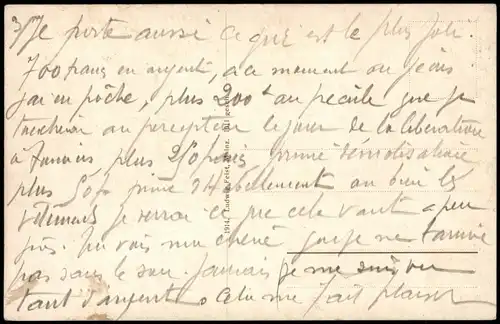 Je porte aussi ce qui est le plus joli.
700 francs en argent, a ce moment ou j'écris
j'ai en poche, plus 200 au pécule que je
toucherai au percepteur le jour de la libération
à plus 250 francs prime démobilisation
plus prime d'habillement ou bien les
vêtements je verrai ce que cela vaut a peu
près. Tu vois ma que je ne
pas sans le sou. Jamais je me suis vu
tant d'argent, Cela me fait plaisir
1914 Ludwig Feist, Mainz.